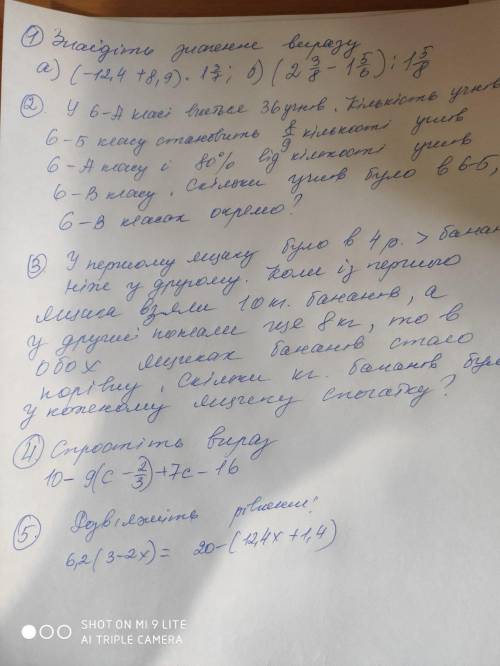 ① Знайдіть значення виразу
а) (-12,4 + 8,9) · 1 3/7 ; б) (2 3/8 - 1 5/6) : 1 5/8
② У 6-А класі вчиться 36 учнів. Кількість учнів
6-Б класу становить 8/9 кількості учнів
6-А класу і 80% від кількості учнів
6-В класу. Скільки учнів було в 6-Б,
6-В класах окремо?
③ У першому ящику було в 4 р. > бананів
ніж у другому. Коли із першого
ящика взяли 10 кг. бананів, а
у другий поклали ще 8 кг, то в
обох ящиках бананів стало
порівну. Скільки кг. бананів було
у кожному ящику спочатку?
④ Спростіть вираз
10 - 9(с - 2/3) + 7с - 16
⑤ Розв'яжіть рівняння:
6,2(3-2х) = 20-(12,4х+1,4)
SHOT ON MI 9 LITE
AI TRIPLE CAMERA